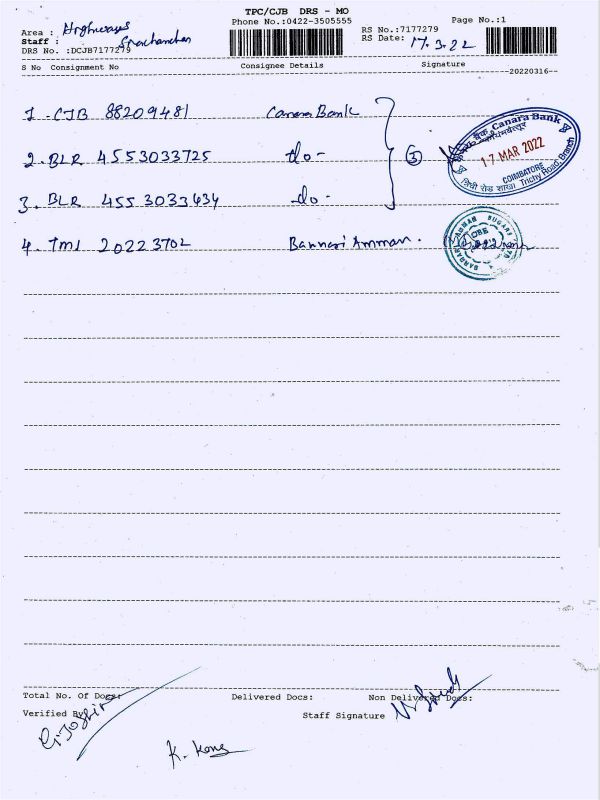 TPC/CJB DRS - MO
Phone No.:0422-3505555
Page No.:1
Area : Highways
RS No.:7177279
Staff :
RS Date: 17.3.22
DRS No. :DCJB7177279
S No Consignment No Consignee Details Signature
--20220316--
1. CJB 88209481 Canara Bank
2. BLR 4553033725 do -
3. BLR 4553033434 do -
3
Canara Bank
17 MAR 2022
COIMBATORE
Trichy Road Branch
4. TMI 20223702 Bannari Amman.
Total No. Of Docs:
Delivered Docs:
Non Delivered Docs:
Verified By
Staff Signature